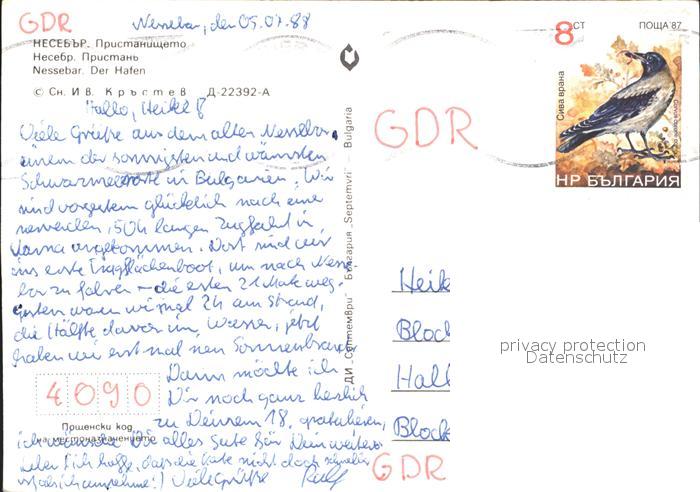 GDR
Nessebar, den 05.07.88
НЕСЕБЪР. Пристанището
Несебр. Пристань
Nessebar. Der Hafen
© Сн. ИВ. Кръстев Д-22392-А
Hallo, Heike!
Viele Grüße aus dem alten Nessebar,
einem der sonnigsten und wärmsten
Schwarzmeerorte in Bulgarien. Wir
sind vorgestern glücklich nach einer
50h langen Zugfahrt in
Varna angekommen. Dort sind wir
ins erste Tragflächenboot, um nach Nesse-
bar zu fahren – die ersten 21 Mark weg.
Gestern waren wir mal 2h am Strand,
die Hälfte davon im Wasser, jetzt
haben wir erst mal nen Sonnenbrand.
Dann möchte ich
Dir noch ganz herzlich
zu Deinem 18. gratulieren,
ich wünsche Dir alles Gute für Dein weiteres
Leben (ich hoffe, daß die Karte nicht doch schneller
ist als ich annehme!) Viele Grüße Ralf
4090
Пощенски код
на местоназначението
ДИ „Септември" България „Septemvri" – Bulgaria
8 СТ ПОЩА'87
Сива врана
НР БЪЛГАРИЯ
GDR
Heik
Bloc
Hall
Block
GDR
privacy protection
Datenschutz